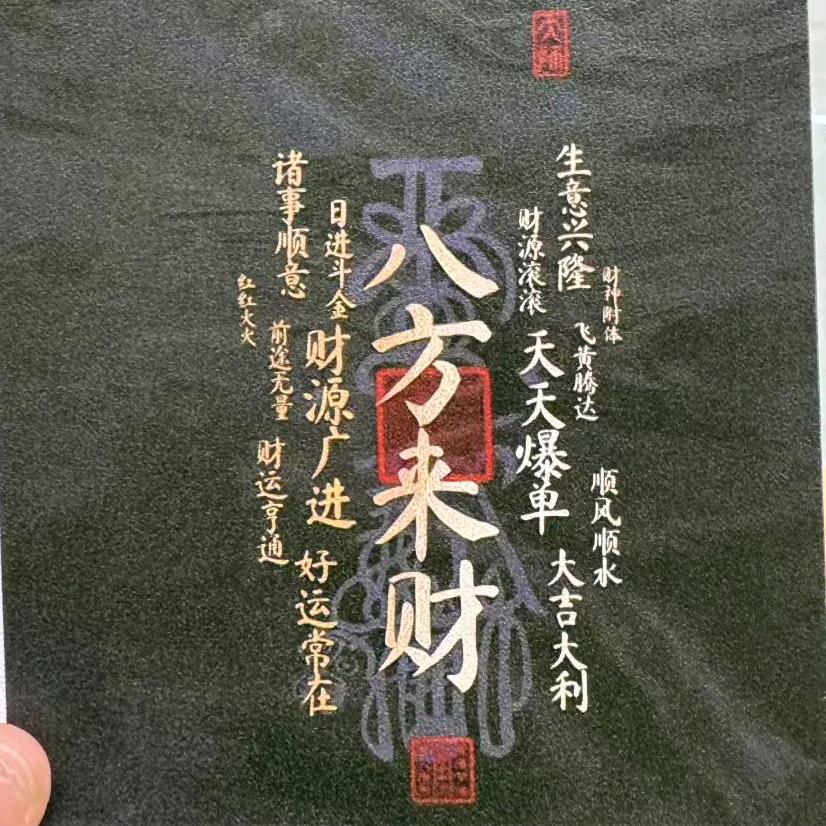 财神附体
顺风顺水
飞黄腾达
生意兴隆
大吉大利
财源滚滚
天天爆单
八方来财
日进斗金
财源广进
好运常在
诸事顺意
前途无量
财运亨通
红红火火